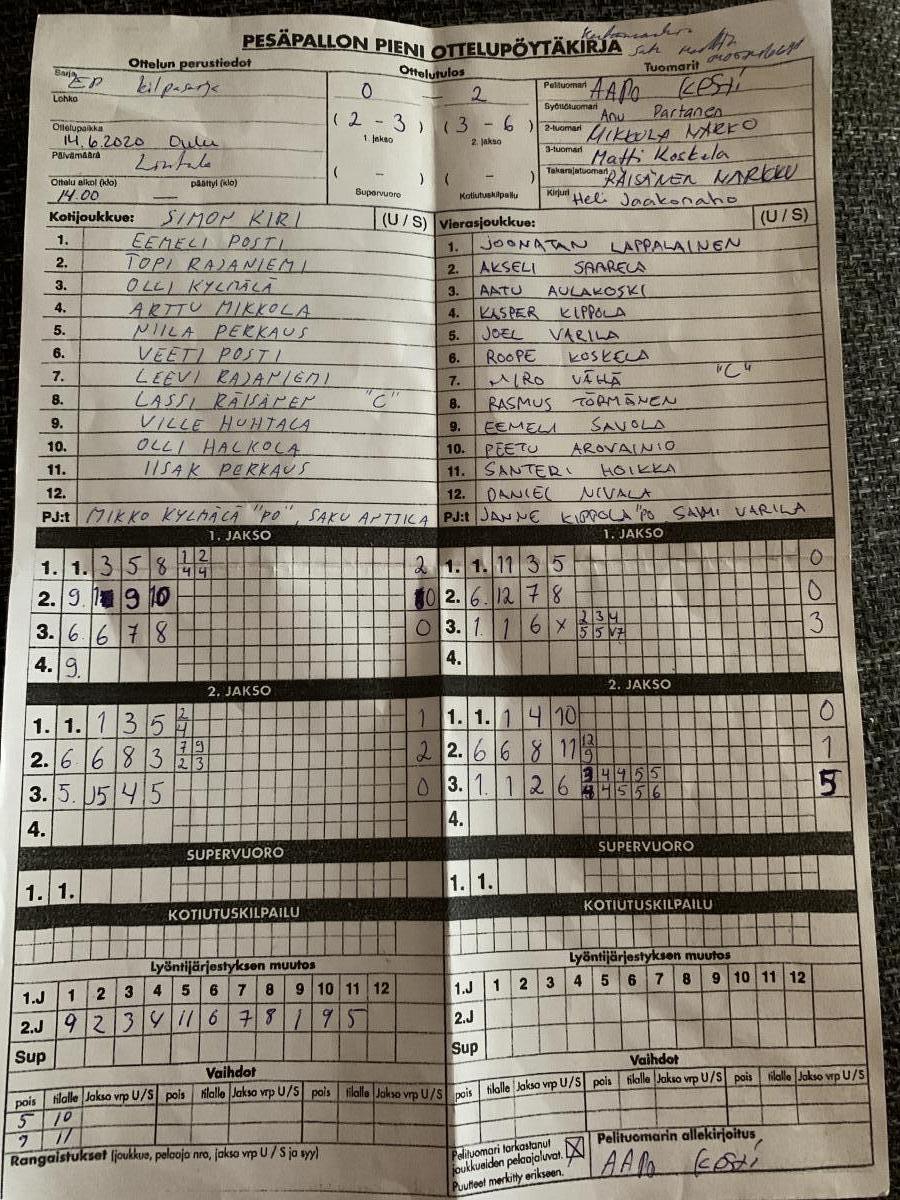 PESÄPALLON PIENI OTTELUPÖYTÄKIRJA
Ottelun perustiedot
Sarja EP kilpasarja
Lohko
Ottelupaikka
14.6.2020 Oulu
Päivämäärä
Lintula
Ottelu alkoi (klo) päättyi (klo)
14.00 —
Ottelutulos
0 — 2
(2 - 3) (3 - 6)
1. jakso 2. jakso
( - ) ( - )
Supervuoro Kotiutuskilpailu
Tuomarit
Pelituomari AAPO KESTI
Syöttötuomari Anu Partanen
2-tuomari MIKKOLA MARKO
3-tuomari Matti Koskela
Takarajatuomari RÄISÄNEN MARKKU
Kirjuri Heli Jaakonaho
Kotijoukkue: SIMON KIRI (U / S)
1. EEMELI POSTI
2. TOPI RAJANIEMI
3. OLLI KYLMÄLÄ
4. ARTTU MIKKOLA
5. NIILA PERKAUS
6. VEETI POSTI
7. LEEVI RAJANIEMI
8. LASSI RÄISÄNEN "C"
9. VILLE HUHTALA
10. OLLI HALKOLA
11. IISAK PERKAUS
12.
PJ:t MIKKO KYLMÄLÄ "PO", SAKU ANTTILA
Vierasjoukkue: (U / S)
1. JOONATAN LAPPALAINEN
2. AKSELI SAARELA
3. AATU AULAKOSKI
4. KASPER KIPPOLA
5. JOEL VARILA
6. ROOPE KOSKELA
7. MIRO VÄHÄ "C"
8. RASMUS TÖRMÄNEN
9. EEMELI SAVOLA
10. PEETU AROVAINIO
11. SANTERI HOIKKA
12. DANIEL NIVALA
PJ:t JANNE KIPPOLA "PO SAMI VARILA
1. JAKSO
1. 1. 3 5 8 1 2 2
4 4
2. 9. 9 10 0
3. 6. 6 7 8 0
4. 9.
1. JAKSO
1. 1. 11 3 5 0
2. 6. 12 7 8 0
3. 1. 1 6 x 2 3 4 3
5 5 V7
4.
2. JAKSO
1. 1. 1 3 5 2 1
4
2. 6 6 8 3 7 9 2
2 3
3. 5. J5 4 5 0
4.
2. JAKSO
1. 1. 1 4 10 0
2. 6 6 8 11 12 1
9
3. 1. 1 2 6 3 4 4 5 5 5
4 4 5 5 6
4.
SUPERVUORO
1. 1.
SUPERVUORO
1. 1.
KOTIUTUSKILPAILU
KOTIUTUSKILPAILU
Lyöntijärjestyksen muutos
1.J 1 2 3 4 5 6 7 8 9 10 11 12
2.J 9 2 3 4 11 6 7 8 1 9 5
Sup
Lyöntijärjestyksen muutos
1.J 1 2 3 4 5 6 7 8 9 10 11 12
2.J
Sup
Vaihdot
pois tilalle Jakso vrp U/S pois tilalle Jakso vrp U/S pois tilalle Jakso vrp U/S
5 10
9 11
Vaihdot
pois tilalle Jakso vrp U/S pois tilalle Jakso vrp U/S pois tilalle Jakso vrp U/S
Rangaistukset (joukkue, pelaaja nro, jakso vrp U / S ja syy)
Pelituomari tarkastanut
joukkueiden pelaajaluvat. X
Puutteet merkitty erikseen.
Pelituomarin allekirjoitus
AAPO KESTI